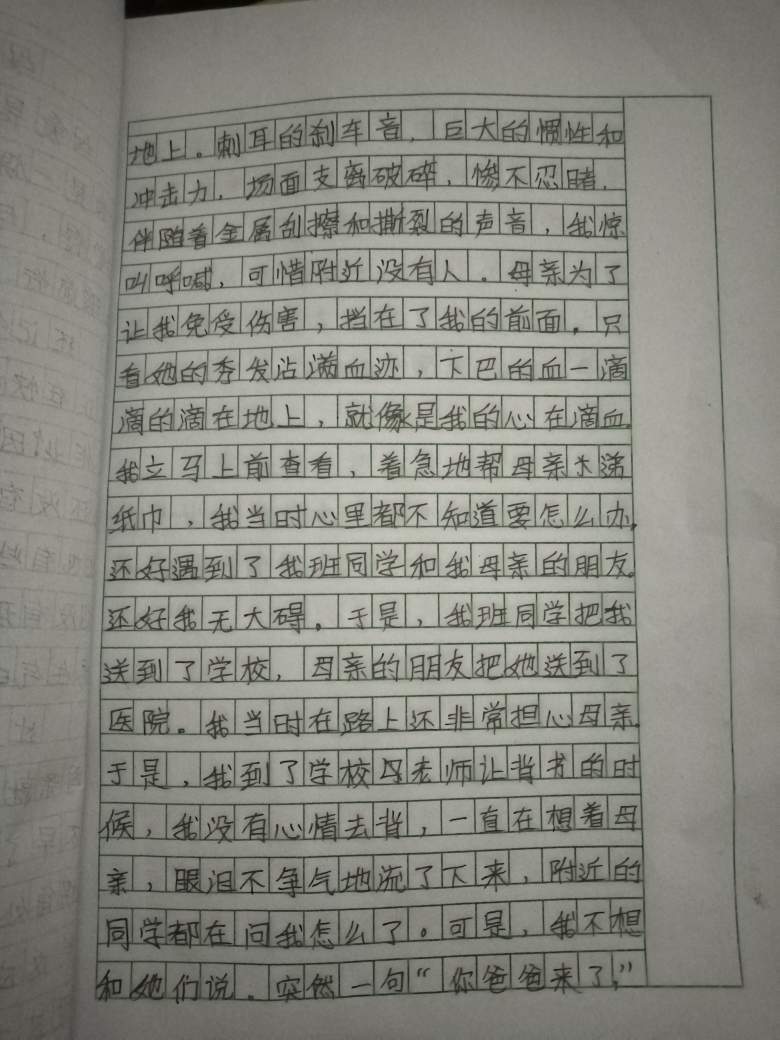 地上。刺耳的刹车音，巨大的惯性和
冲击力，场面支离破碎，惨不忍睹，
伴随着金属刮擦和撕裂的声音，我惊
叫呼喊，可惜附近没有人。母亲为了
让我免受伤害，挡在了我的前面。只
看她的秀发沾满血迹，下巴的血一滴
滴的滴在地上，就像是我的心在滴血。
我立马上前查看，着急地帮母亲去递
纸巾，我当时心里都不知道要怎么办。
还好遇到了我班同学和我母亲的朋友。
还好我无大碍。于是，我班同学把我
送到了学校，母亲的朋友把她送到了
医院。我当时在路上还非常担心母亲。
于是，我到了学校母老师让背书的时
候，我没有心情去背，一直在想着母
亲，眼泪不争气地流了下来，附近的
同学都在问我怎么了。可是，我不想
和她们说。突然一句“你爸爸来了，”